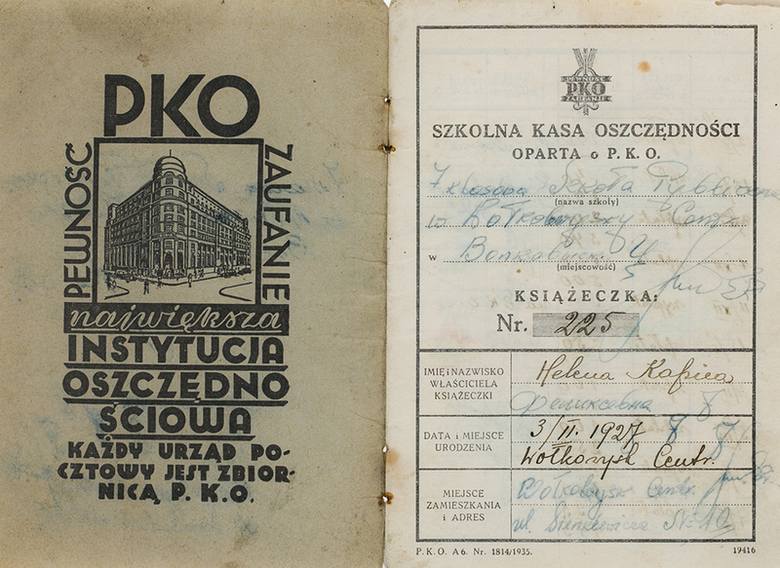 PKO
PEWNOŚĆ
ZAUFANIE
największa
INSTYTUCJA
OSZCZĘDNO
ŚCIOWA
KAŻDY URZĄD PO-
CZTOWY JEST ZBIOR-
NICĄ P. K. O.
PEWNOŚĆ
PKO
ZAUFANIE
SZKOLNA KASA OSZCZĘDNOŚCI
OPARTA o P. K. O.
7 klasowa Szkoła
(nazwa szkoły)
w
(miejscowość)
KSIĄŻECZKA:
Nr. 225
IMIĘ i NAZWISKO WŁAŚCICIELA KSIĄŻECZKI
Helena Kafica
DATA i MIEJSCE URODZENIA
3/II. 1927
Centr.
MIEJSCE ZAMIESZKANIA i ADRES
Centr.
ul. Sienkiewicza № 10
P. K. O. A 6. Nr. 1814/1935.
19416